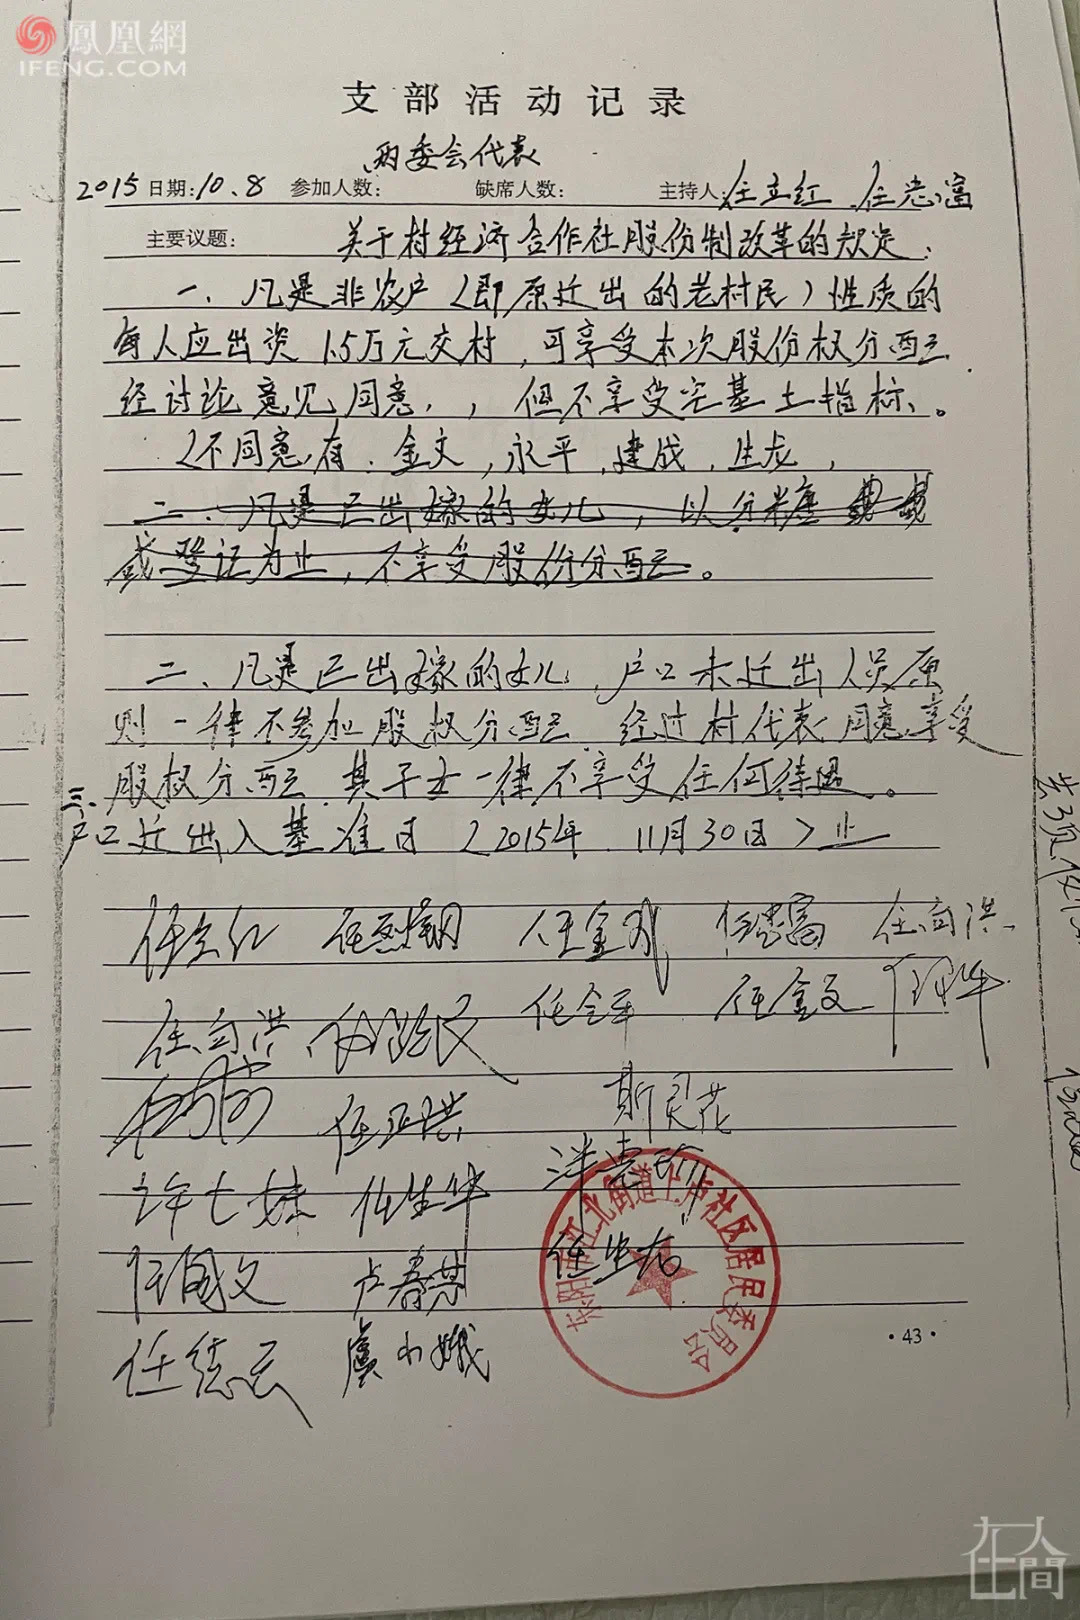 鳳凰網
IFENG.COM
支部活动记录
两委会代表
2015日期:10.8 参加人数: 缺席人数: 主持人:任立红 任忠富
主要议题: 关于村经济合作社股份制改革的规定:
一、凡是非农户(即原迁出的老村民)性质的
每人应出资1.5万元交村,可享受本次股份权分配
经讨论意见同意,,但不享受宅基土指标。
(不同意有:金文,永平,建成,生龙,
二、凡是已出嫁的女儿,以分粮
或登记为止,不享受股份分配。
二、凡是已出嫁的女儿,户口未迁出人员原
则一律不参加股权分配 经过村代表同意享受
股权分配,其子女一律不享受任何待遇。
三、户口迁出入基准日(2015年 11月30日)止
任立红 任 任金 任忠富 任向洪
任向洪 任 民 任金平 任金文 任 华
任 洪 斯灵花
许七妹 任生华
任国文 卢春 任生龙
任德云 虞小娥
东阳市江北街道上卢社区居民委员会
·43·
在人間